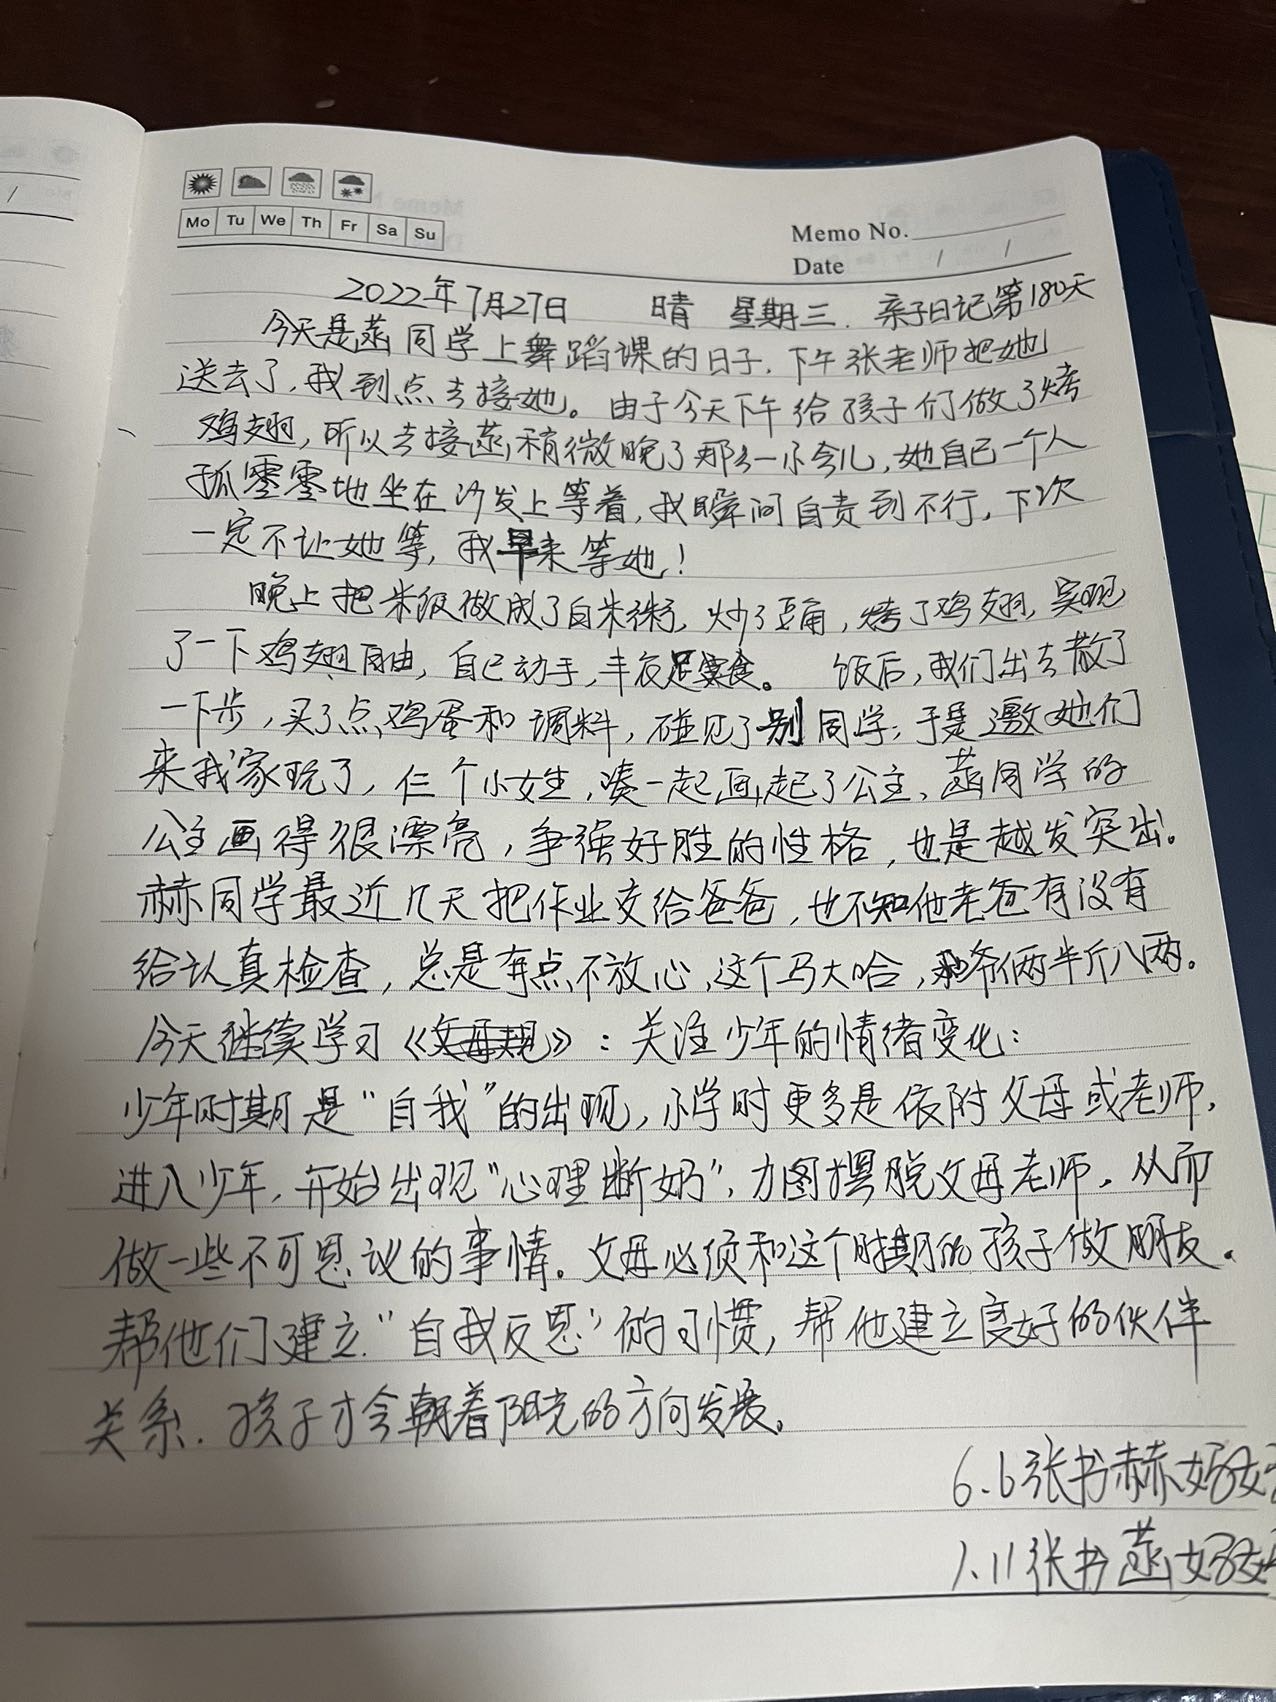 Mo Tu We Th Fr Sa Su
Memo No.
Date / /
2022年7月27日 晴 星期三. 亲子日记第180天
今天是菡同学上舞蹈课的日子.下午张老师把她
送去了,我到点去接她。由于今天下午给孩子们做了烤
鸡翅,所以去接菡稍微晚了那么一小会儿,她自己一个人
孤零零地坐在沙发上等着,我瞬间自责到不行,下次
一定不让她等,我早来等她!
晚上把米饭做成了白米粥,炒了豆角,烤了鸡翅,实现
了一下鸡翅自由,自己动手,丰衣足食。饭后,我们出去散了
一下步,买了点鸡蛋和调料,碰见了别同学,于是邀她们
来我家玩了,仨个小女生,凑一起画起了公主、菡同学的
公主画得很漂亮,争强好胜的性格,也是越发突出。
赫同学最近几天把作业交给爸爸,也不知他老爸有没有
给认真检查,总是有点不放心,这个马大哈,爷俩半斤八两。
今天继续学习《父母规》:关注少年的情绪变化:
少年时期是“自我”的出现,小学时更多是依附父母或老师,
进入少年,开始出现“心理断奶”,力图摆脱父母老师,从而
做一些不可思议的事情。父母必须和这个时期的孩子做朋友。
帮他们建立“自我反思”的习惯,帮他建立良好的伙伴
关系.孩子才会朝着阳光的方向发展。
6.6张书赫妈妈
1.11张书菡妈妈